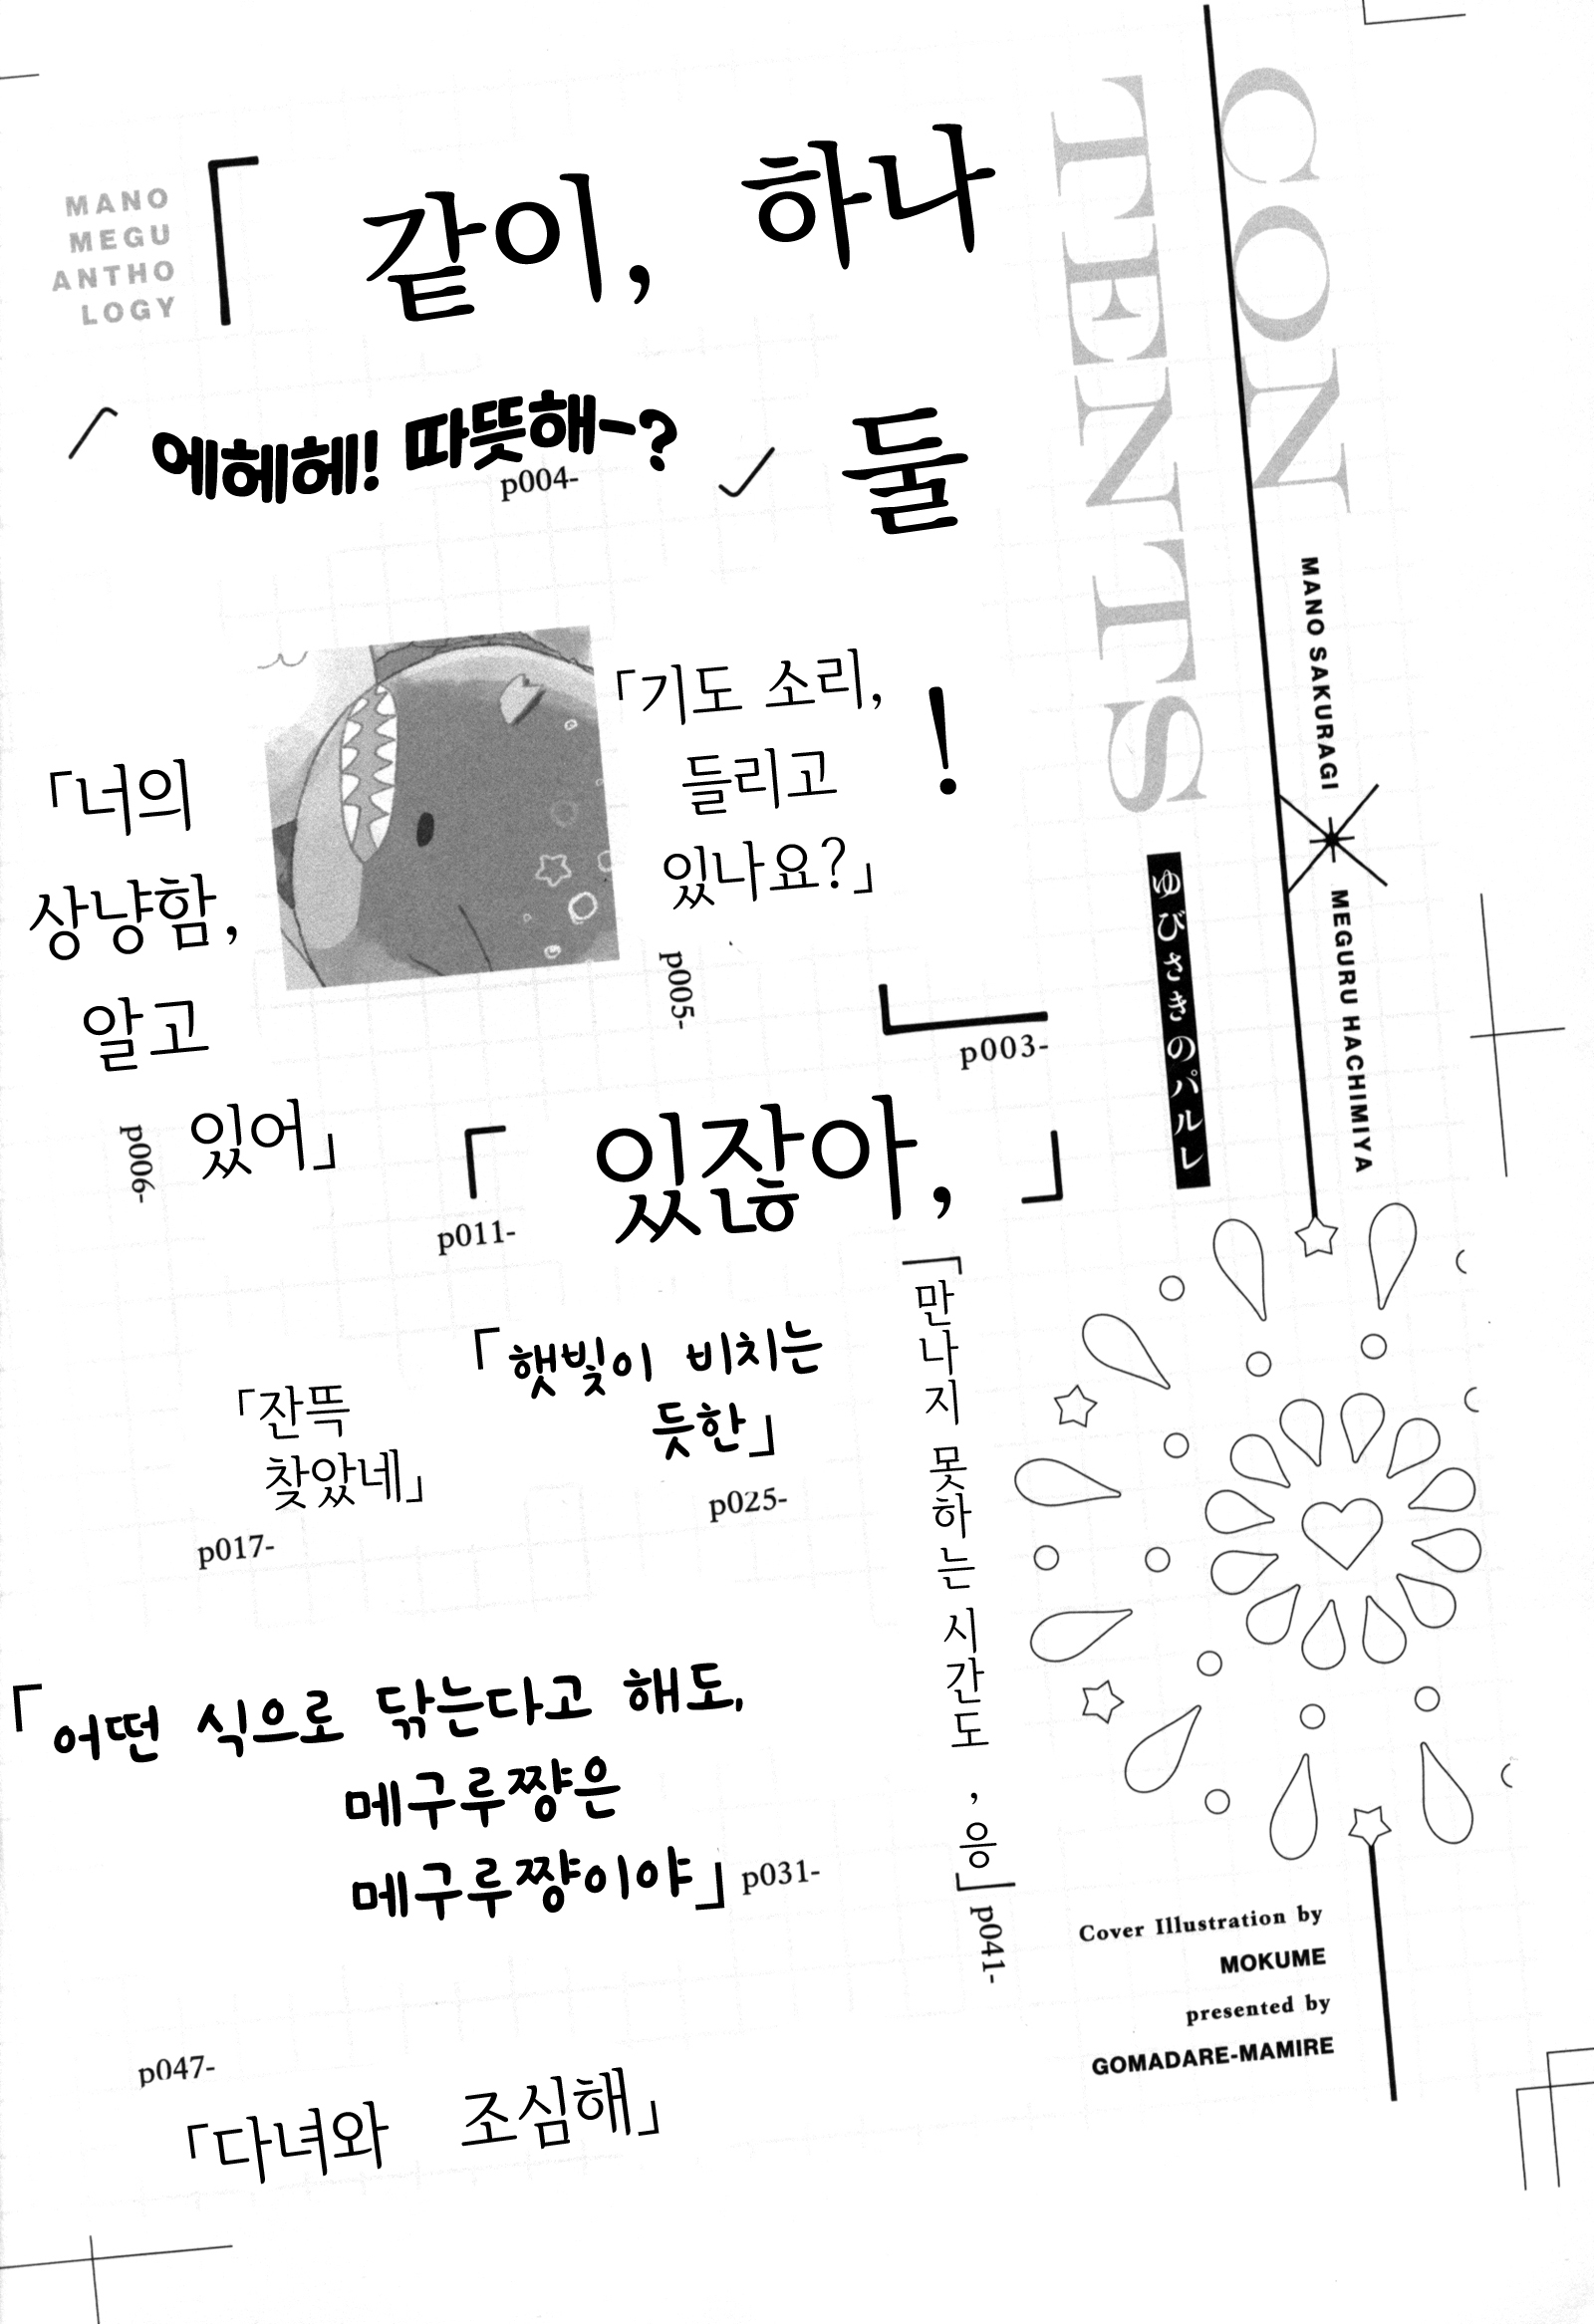 CON
TENTS
MANO SAKURAGI
MEGURU HACHIMIYA
ゆびさきのパルレ
MANO
MEGU
ANTHO
LOGY
「 같이, 하나
둘
!
」
p003-
에헤헤! 따뜻해~?
p004-
「기도 소리,
들리고
있나요?」
p005-
「너의
상냥함,
알고
있어」
p006-
「 있잖아, 」
p011-
「잔뜩
찾았네」
p017-
「햇빛이 비치는
듯한」
p025-
「어떤 식으로 닦는다고 해도,
메구루쨩은
메구루쨩이야」
p031-
「만나지 못하는 시간도, 응」
p041-
p047-
「다녀와 조심해」
Cover Illustration by
MOKUME
presented by
GOMADARE-MAMIRE